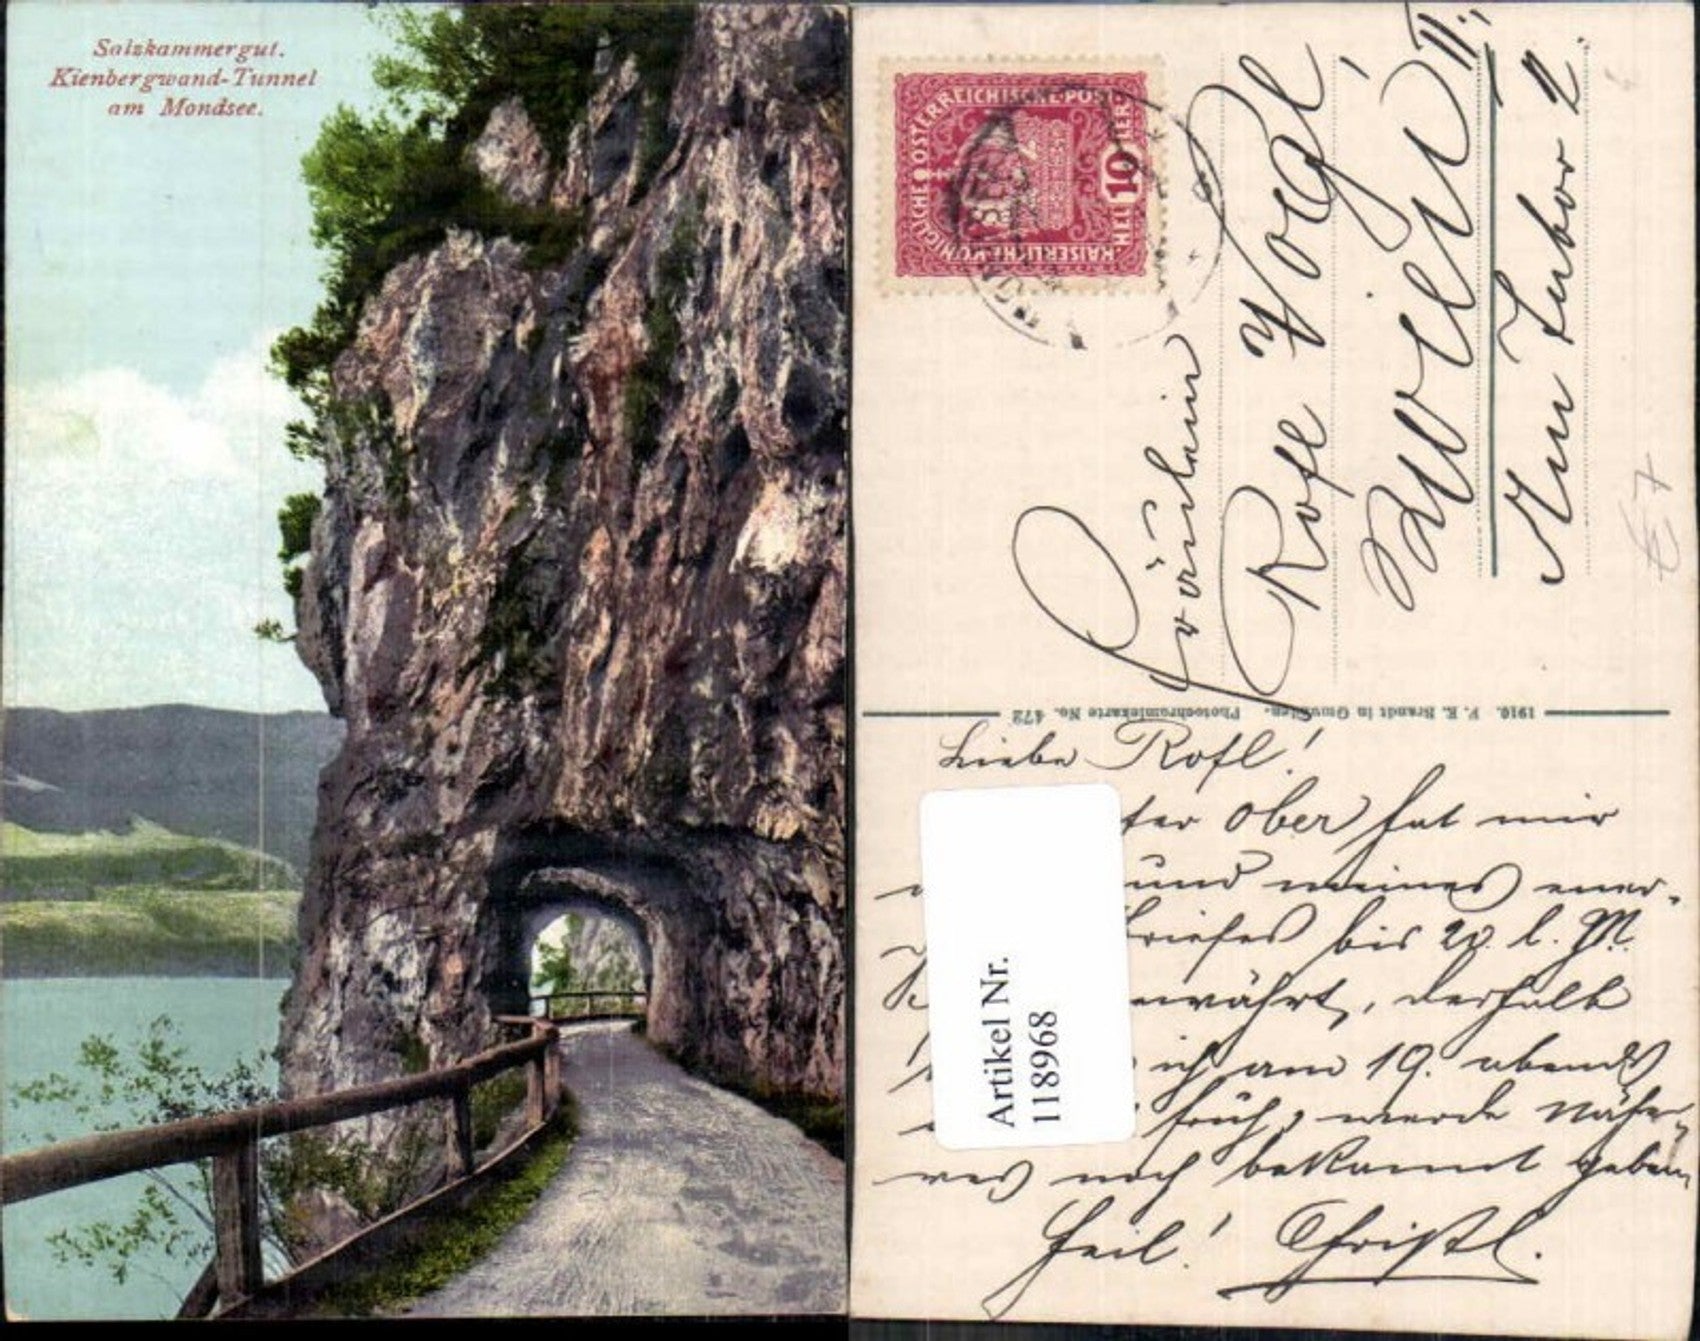 Salzkammergut.
Kienbergwand-Tunnel
am Mondsee.
KAISERLICHE KÖNIGLICHE ÖSTERREICHISCHE POST
HELLER 10 HELLER
Fräulein
Rosl Vogl
Wien II.,
1910. F. E. Brandt in Gmunden. Photochromiekarte No. 472
Liebe Rosl!
ober hat mir
und meines
bis 20. l. M.
derhalb
ich am 19. abends
früh, werde Nähe-
res noch bekannt geben,
Heil! Christl.
Artikel Nr.
118968